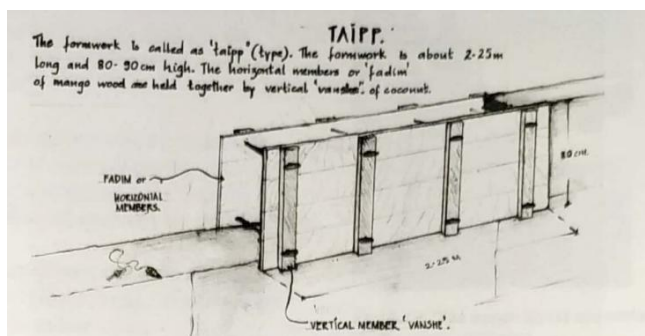 TAIPP.
The formwork is called as 'taipp' (type). The formwork is about 2.25m
long and 80-90cm high. The horizontal members or 'fadim'
of mango wood are held together by vertical 'vanshe'. of coconut.
80 CM.
FADIM or
HORIZONTAL
MEMBERS.
2.25 m
VERTICAL MEMBER 'VANSHE'.